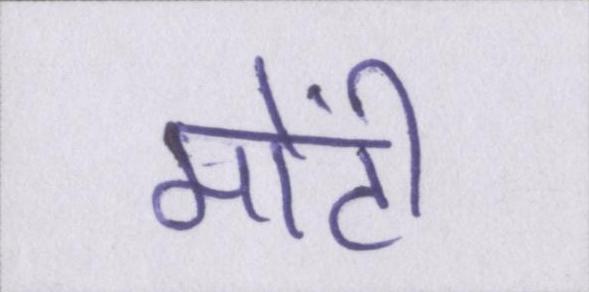 मोंटी